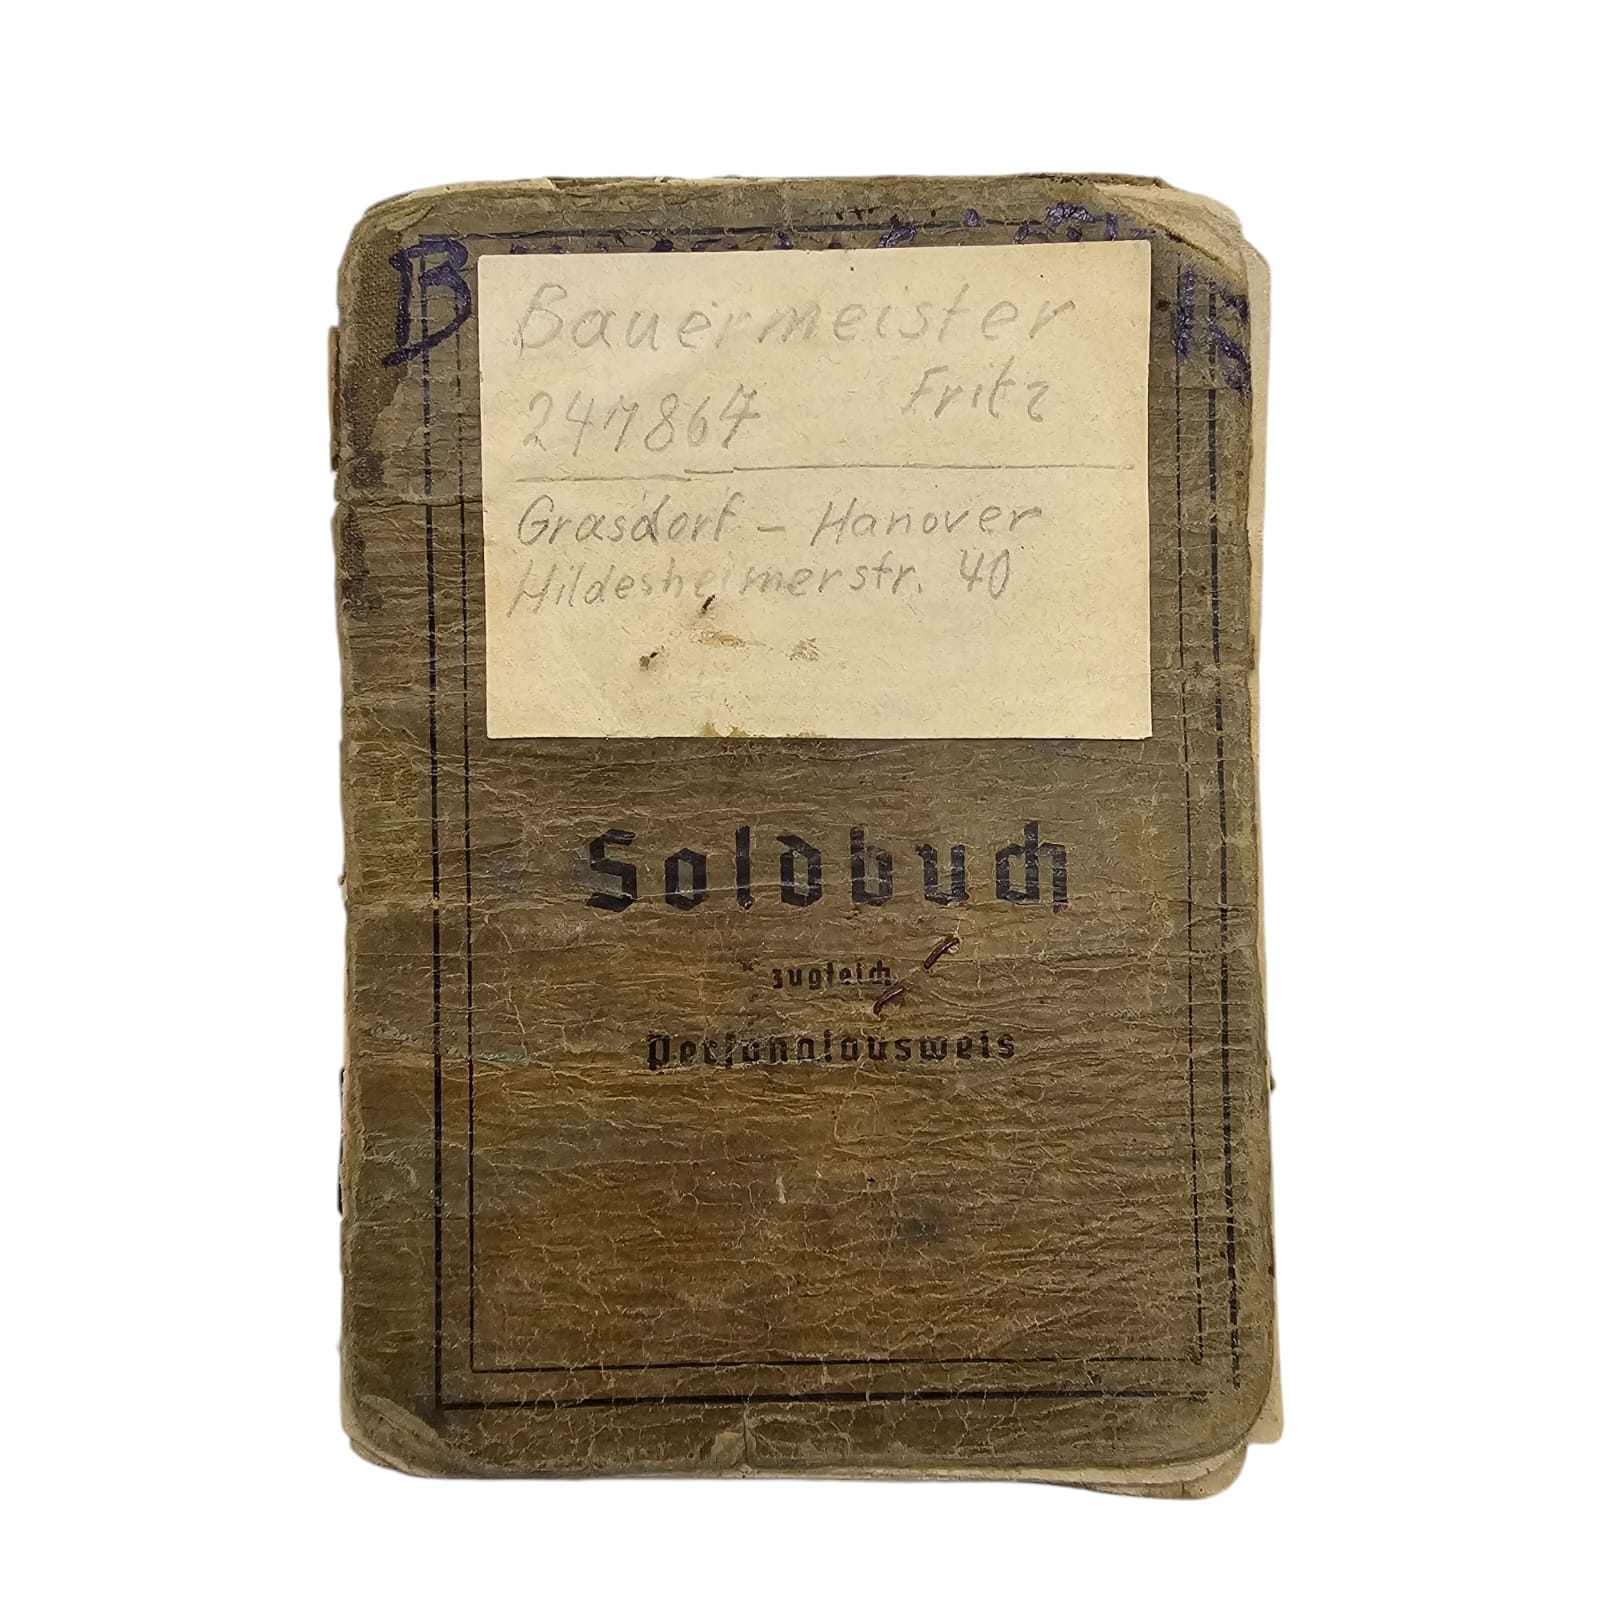 B
Bauermeister
247864 Fritz
Grasdorf - Hanover
Hildesheimerstr. 40
Soldbuch
zugleich
Personalausweis